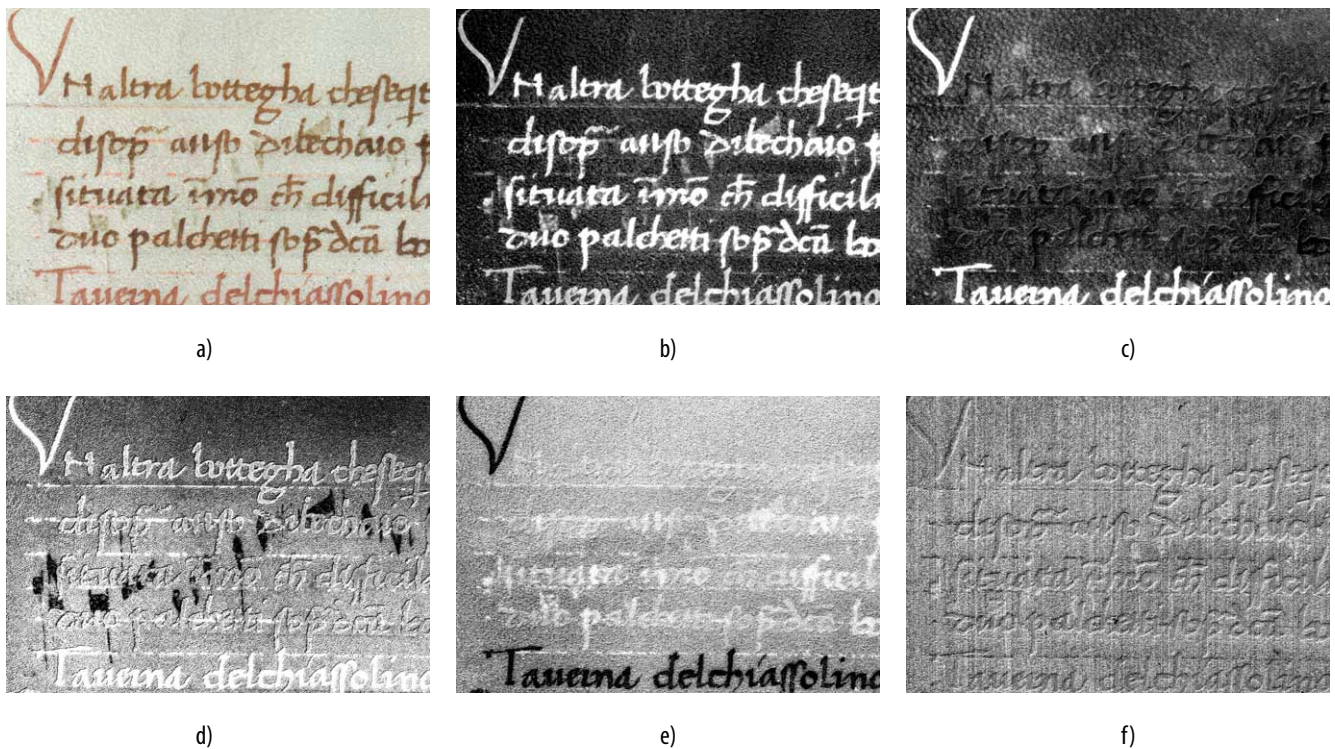 VN altra bottegha cheseqt
disop̃ auso dibechaio p
situata ĩmõ ch̃ difficila
duo palchetti sop̃ dcã bo
Tauerna delchiassolino
a)
VN altra bottegha cheseqt
disop̃ auso dibechaio p
situata ĩmõ ch̃ difficila
duo palchetti sop̃ dcã bo
Tauerna delchiassolino
b)
VN altra bottegha cheseqt
disop̃ auso dibechaio
situata ĩmõ ch̃ difficila
duo palchetti sop̃ dcã bo
Tauerna delchiassolino
c)
VN altra bottegha cheseqt
disop̃ auso dibechaio
situata ĩmõ ch̃ difficila
duo palchetti sop̃ dcã bo
Tauerna delchiassolino
d)
VN altra bottegha
disop̃ auso dibechaio
situata ĩmõ ch̃ difficil
duo palchetti sop̃ dcã bo
Tauerna delchiassolino
e)
VN altra bottegha cheseqt
disop̃ auso dibechaio
situata ĩmõ ch̃ difficila
duo palchetti sop̃ dcã bo
Tauerna delchiassolino
f)